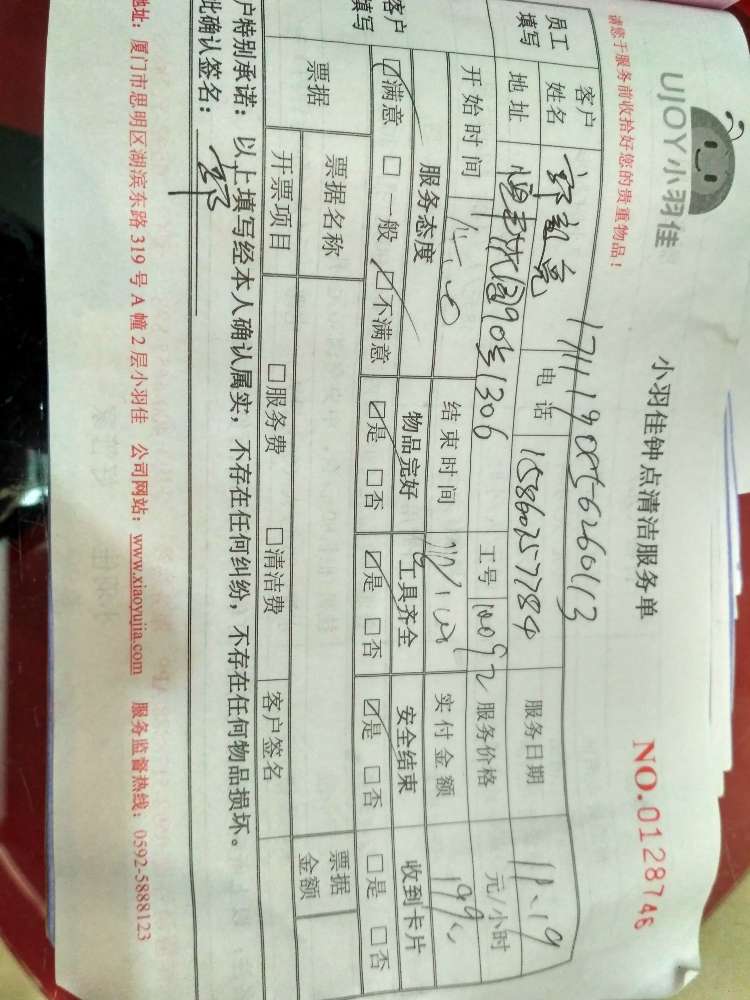 UJOY小羽佳
小羽佳钟点清洁服务单
NO.0128746
请您于服务前收拾好您的贵重物品！
1711190856260113
员工填写
客户姓名 电话 15860757784 服务日期 11.19
地址 90号1306 工号 服务价格 元/小时
开始时间 结束时间 实付金额 199
客户填写
服务态度 物品完好 工具齐全 安全结束 收到卡片
☑满意 □一般 ☑不满意 ☑是 □否 ☑是 □否 ☑是 □否 □是 □否
票据 票据名称 票据金额
开票项目 □服务费 □清洁费 客户签名
户特别承诺：以上填写经本人确认属实，不存在任何纠纷，不存在任何物品损坏。
此确认签名：
地址：厦门市思明区湖滨东路319号A幢2层小羽佳 公司网站：www.xiaoyujia.com 服务监督热线：0592-5888123